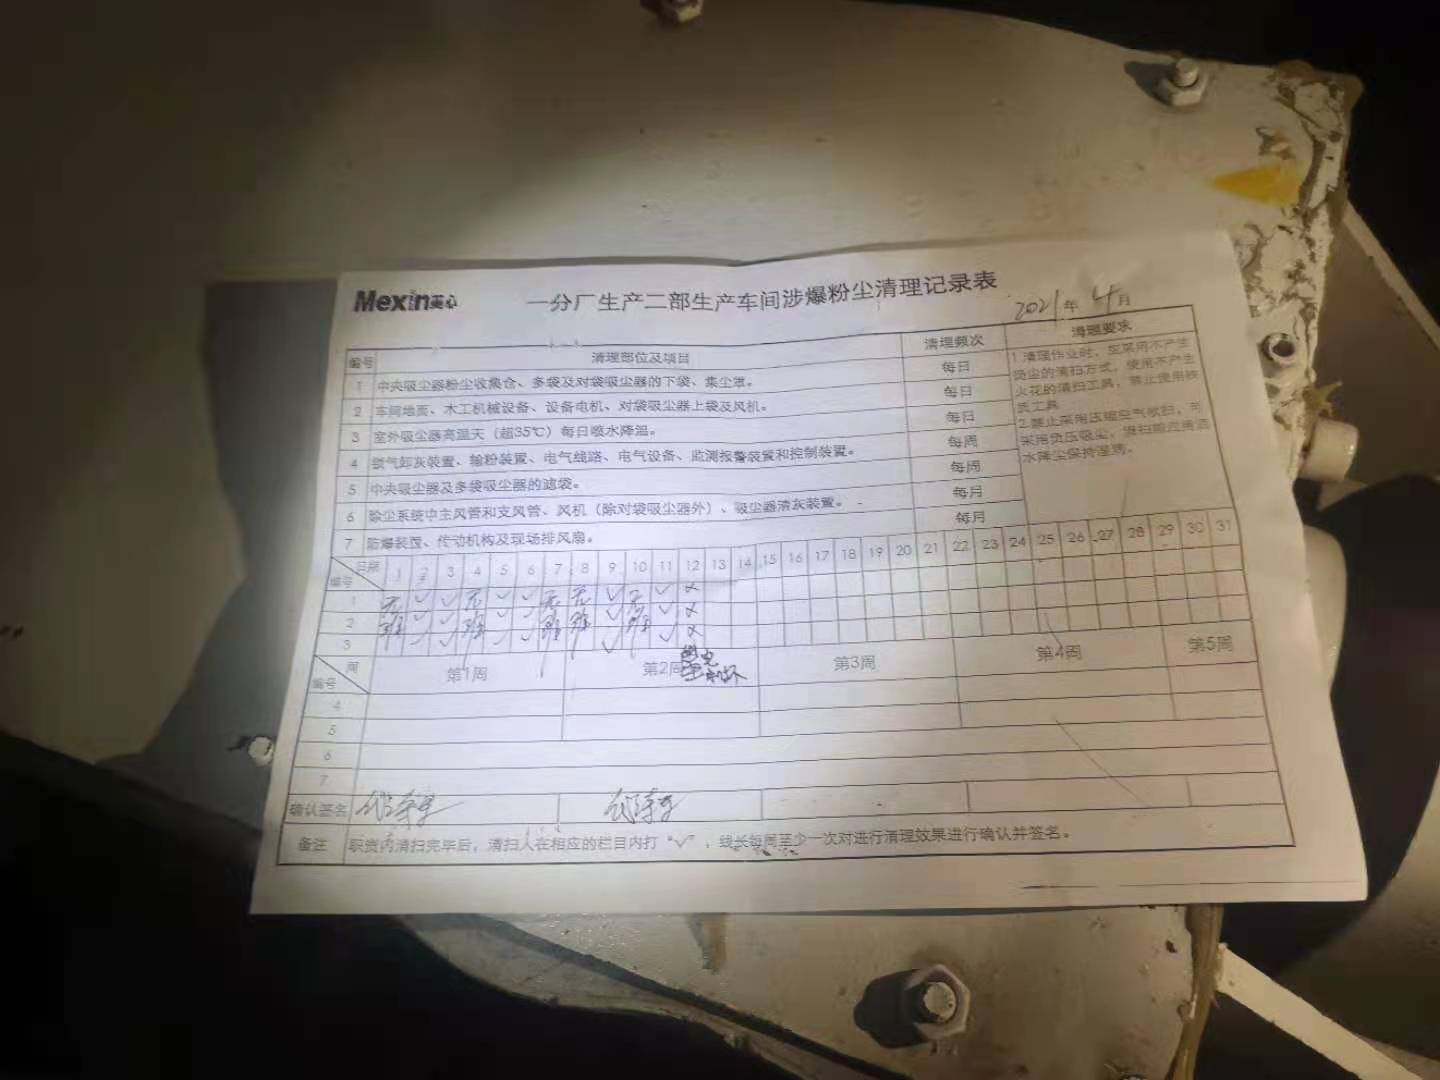 Mexin美心
一分厂生产二部生产车间涉爆粉尘清理记录表
2021年 4月
编号 清理部位及项目 清理频次 清理要求
1 中央吸尘器粉尘收集仓、多袋及对袋吸尘器的下袋、集尘罩。 每日
2 车间地面、木工机械设备、设备电机、对袋吸尘器上袋及风机。 每日
3 室外吸尘器高温天（超35℃）每日喷水降温。 每日
4 锁气卸灰装置、输粉装置、电气线路、电气设备、监测报警装置和控制装置。 每周
5 中央吸尘器及多袋吸尘器的滤袋。 每周
6 除尘系统中主风管和支风管、风机（除对袋吸尘器外）、吸尘器清灰装置。 每月
7 防爆装置、传动机构及现场排风扇。 每月
1.清理作业时，应采用不产生
扬尘的清扫方式，使用不产生
火花的清扫工具，禁止使用铁
质工具
2.禁止采用压缩空气吹扫，可
采用负压吸尘，清扫前应清洒
水降尘保持湿润。
日期 编号 1 2 3 4 5 6 7 8 9 10 11 12 13 14 15 16 17 18 19 20 21 22 23 24 25 26 27 28 29 30 31
1 无 ✓ ✓ 无 ✓ ✓ 无 无 ✓ 无 ✓ ×
2 班 ✓ ✓ 班 ✓ ✓ 班 班 ✓ 班 ✓ ×
3 ✓ ✓ ✓ ✓ ✓ ✓ ×
周 编号 第1周 第2周 第3周 第4周 第5周
4
5
6
7
确认签名
备注 职责内清扫完毕后，清扫人在相应的栏目内打“✓”，线长每周至少一次对进行清理效果进行确认并签名。